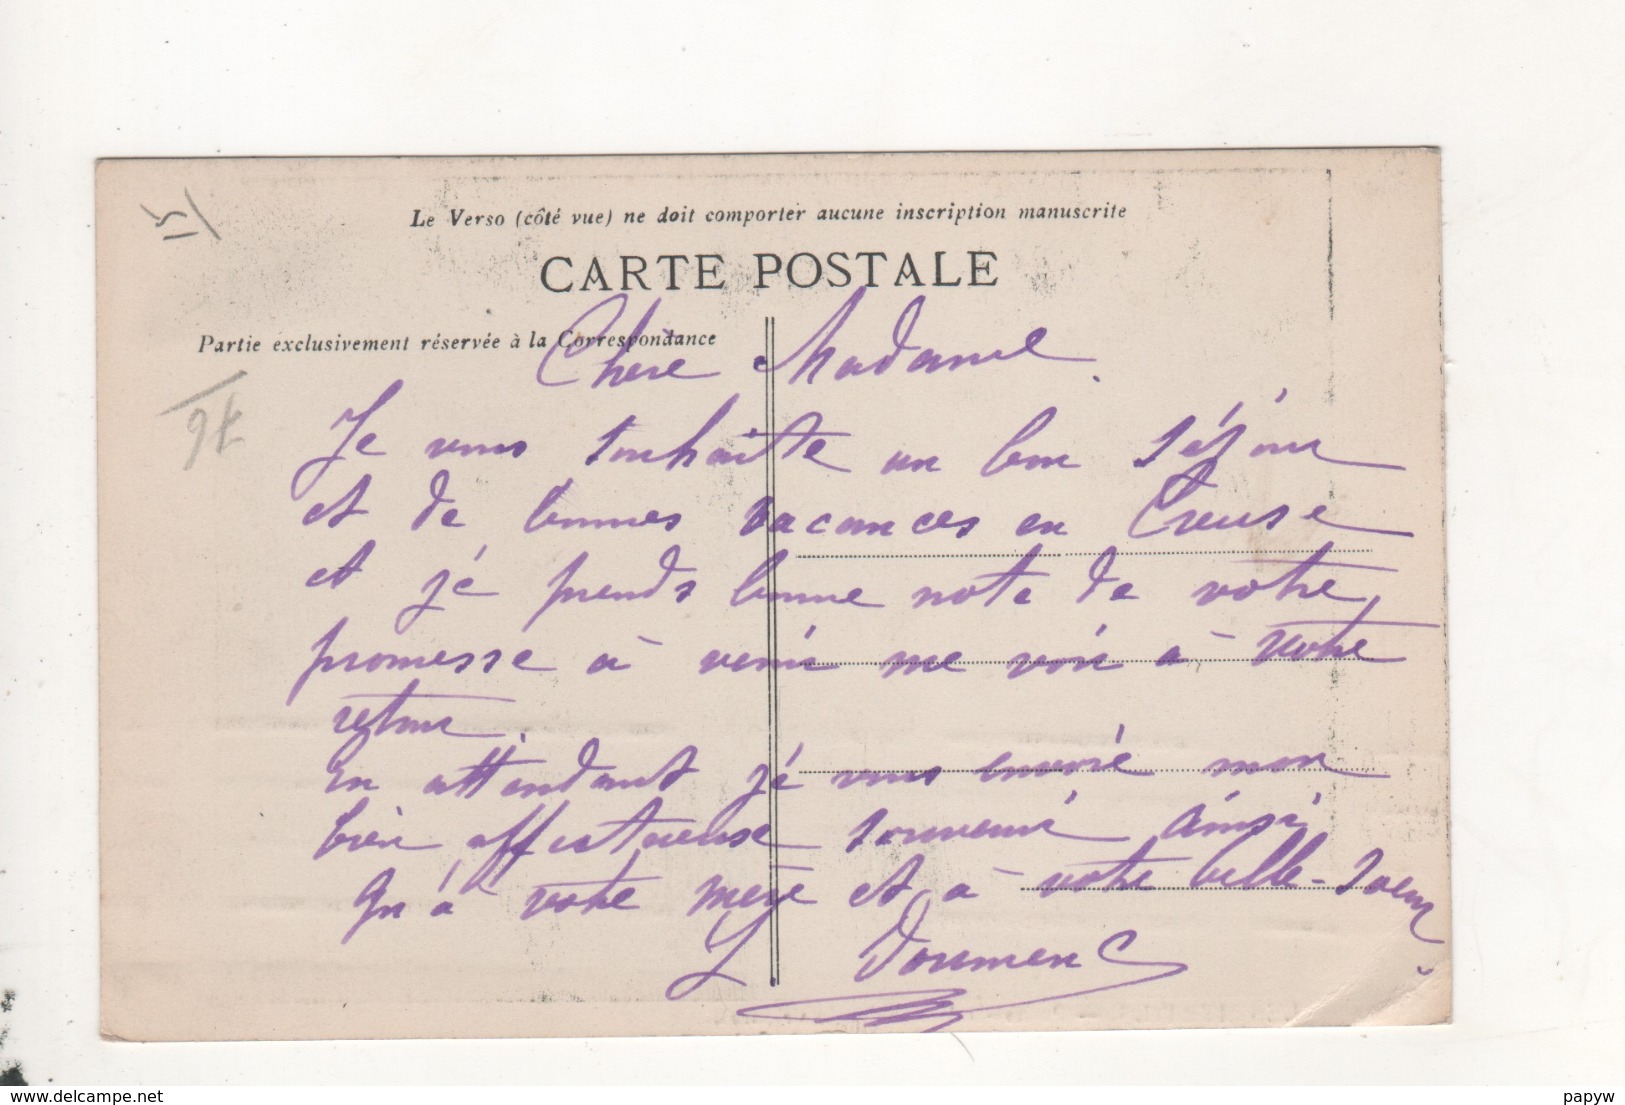 Le Verso (côté vue) ne doit comporter aucune inscription manuscrite
CARTE POSTALE
Partie exclusivement réservée à la Correspondance
Chere Madame.
Je vous souhaite un bon séjour
et de bonnes vacances en Creuse
et jé prends bonne note de votre
promesse à venir me voir à votre
retour.
En attendant jé vous envoié mon
bien affectueuse souvenir ainsi
qu'à votre mère et à votre belle-soeur
L Doumenc
15
76
www.delcampe.net
papyw